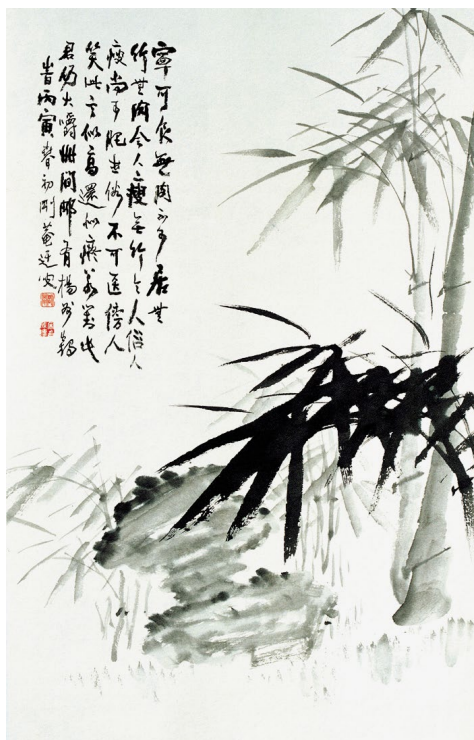 寧可食無肉不可居無
竹無肉令人瘦無竹令人俗人
瘦尚可肥士俗不可医傍人
笑此言似高還似癡若對此
君仍大嚼世間那有楊州鶴
旹丙寅春初剛菴